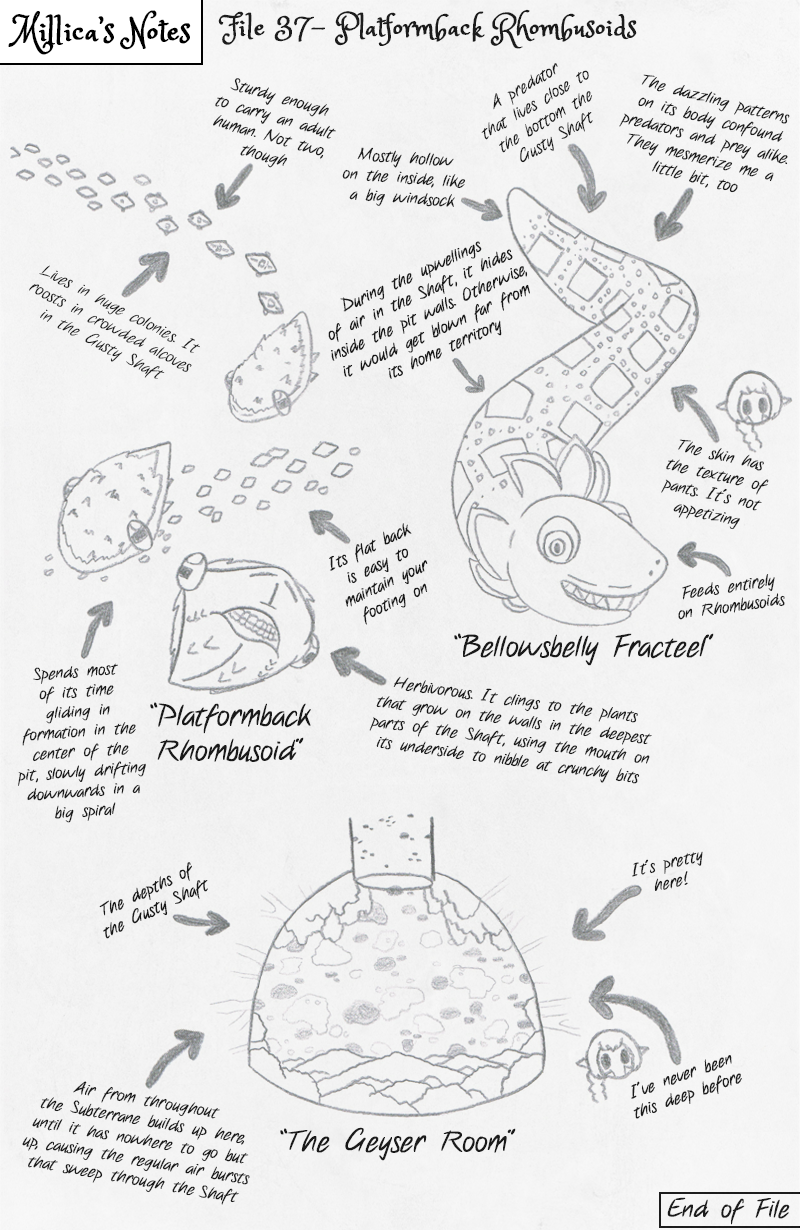 Millica's Notes
File 37- Platformback Rhombusoids
Sturdy enough
to carry an adult
human. Not two,
though
Mostly hollow
on the inside, like
a big windsock
A predator
that lives close to
the bottom the
Gusty Shaft
The dazzling patterns
on its body confound
predators and prey alike.
They mesmerize me a
little bit, too
Lives in huge colonies. It
roosts in crowded alcoves
in the Gusty Shaft
During the upwellings
of air in the Shaft, it hides
inside the pit walls. Otherwise,
it would get blown far from
its home territory
The skin has
the texture of
pants. It's not
appetizing
Its flat back
is easy to
maintain your
footing on
Feeds entirely
on Rhombusoids
"Bellowsbelly Fracteel"
Spends most
of its time
gliding in
formation in the
center of the
pit, slowly drifting
downwards in a
big spiral
"Platformback
Rhombusoid"
Herbivorous. It clings to the plants
that grow on the walls in the deepest
parts of the Shaft, using the mouth on
its underside to nibble at crunchy bits
The depths of
the Gusty Shaft
It's pretty
here!
Air from throughout
the Subterrane builds up here,
until it has nowhere to go but
up, causing the regular air bursts
that sweep through the Shaft
I've never been
this deep before
"The Geyser Room"
End of File